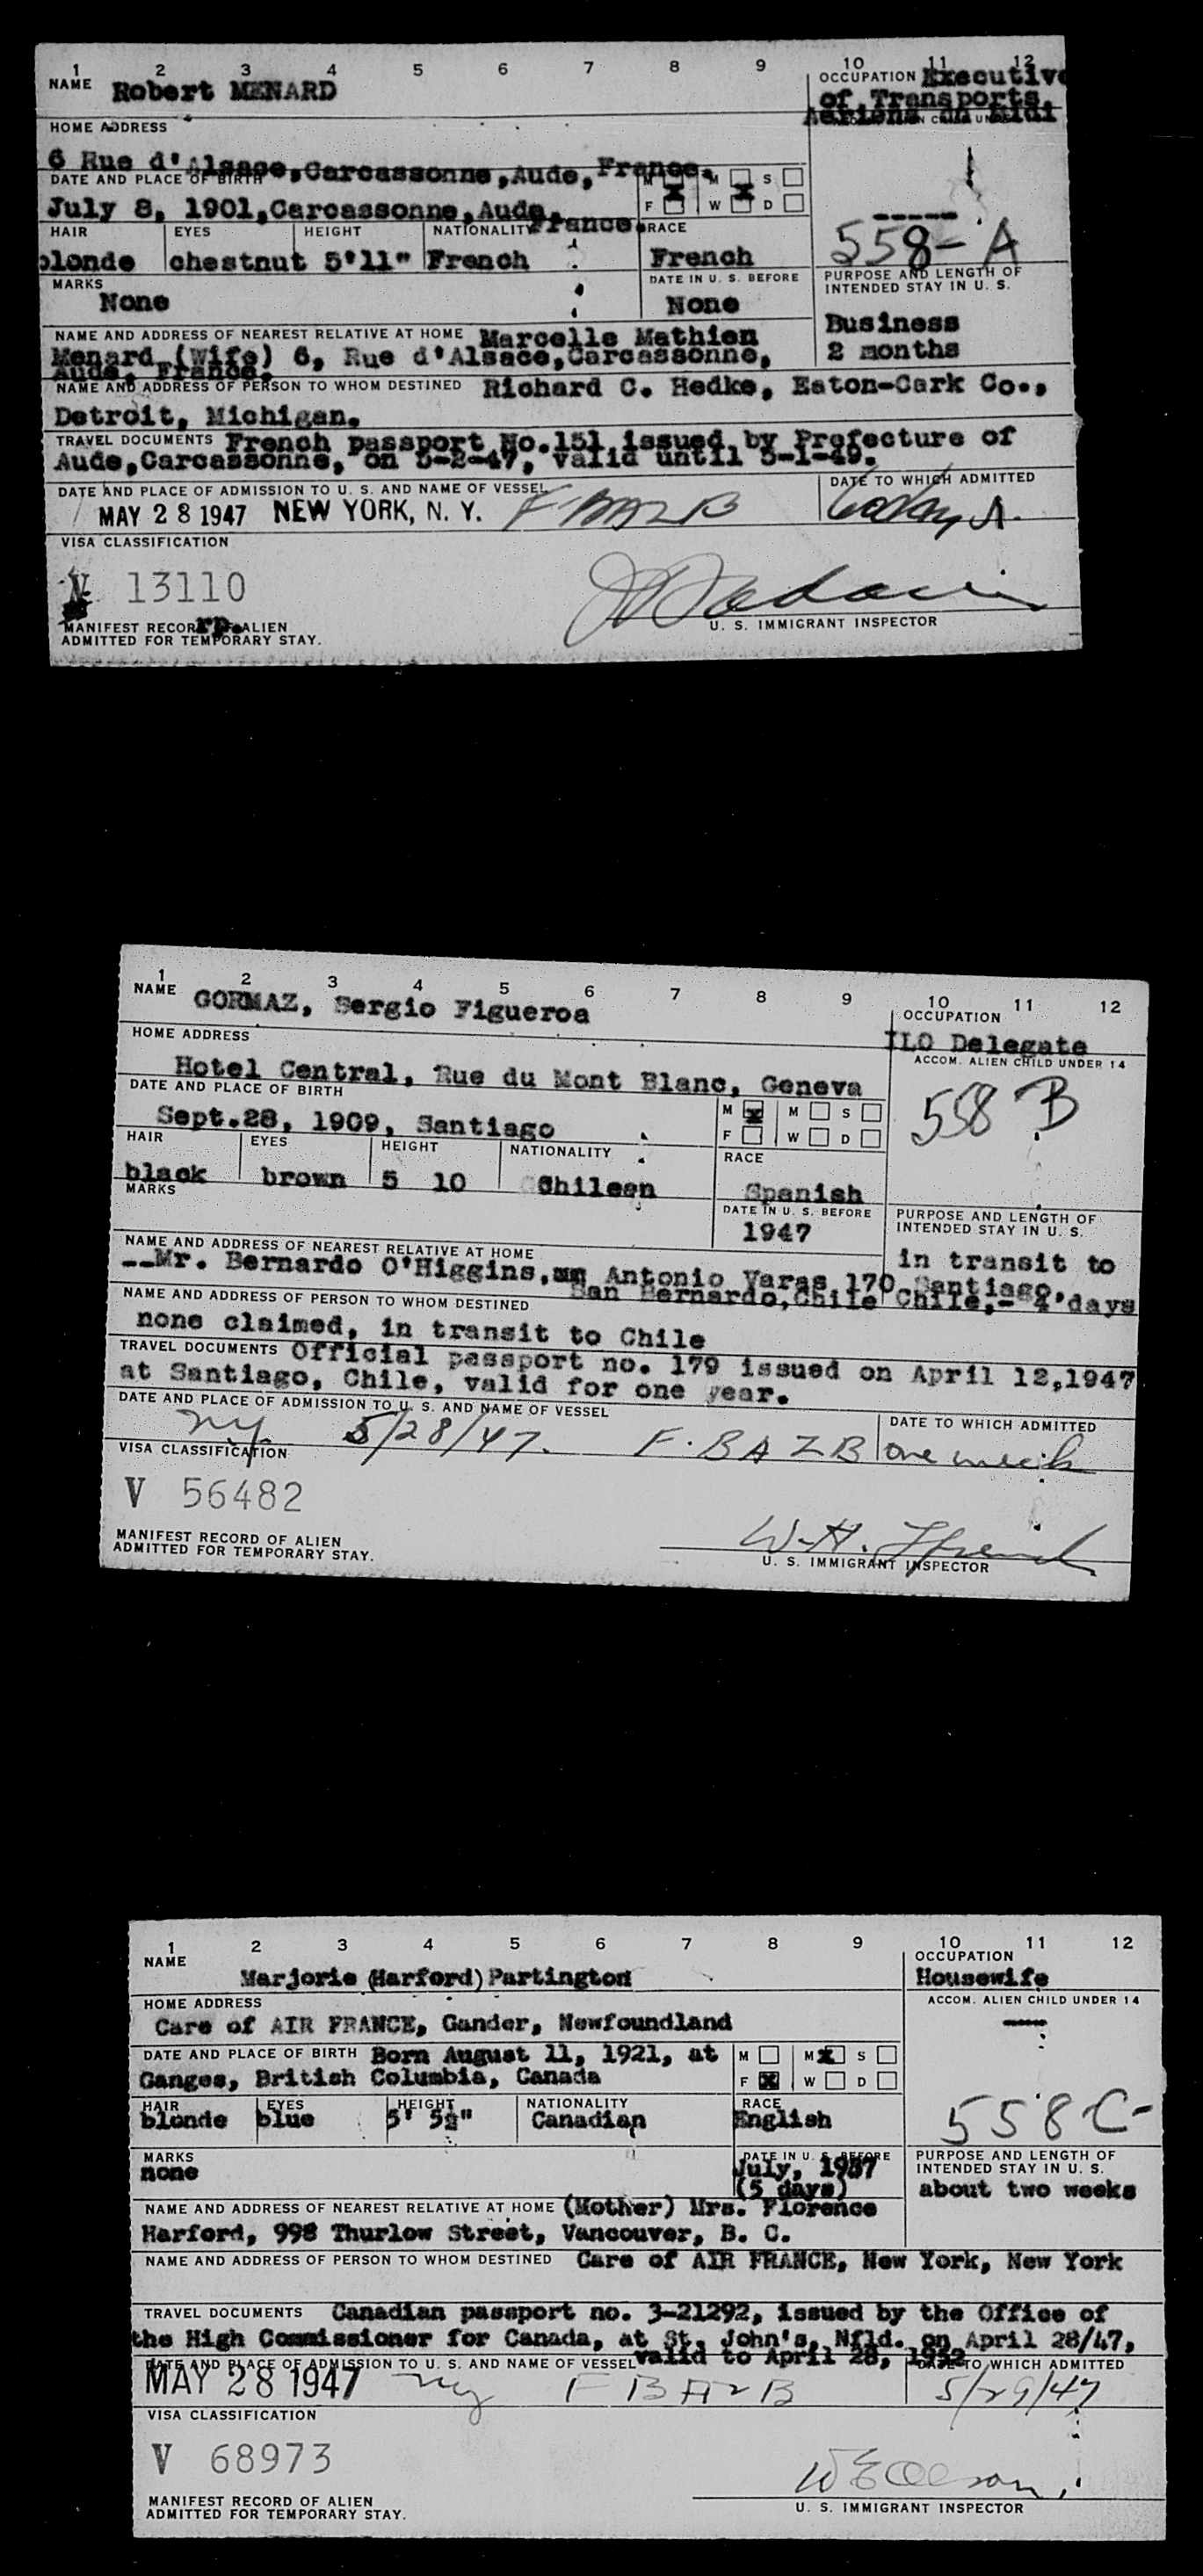 1 2 3 4 5 6 7 8 9 10 11 12
NAME Robert MENARD
OCCUPATION Executive
of Transports
Aeriens du Midi
HOME ADDRESS
6 Rue d'Alsace, Carcassonne, Aude, France.
DATE AND PLACE OF BIRTH
July 8, 1901, Carcassonne, Aude, France.
M M S
F W D
HAIR EYES HEIGHT NATIONALITY RACE
blonde chestnut 5'11" French French
558-A
MARKS DATE IN U. S. BEFORE
None None
PURPOSE AND LENGTH OF
INTENDED STAY IN U. S.
Business
2 months
NAME AND ADDRESS OF NEAREST RELATIVE AT HOME Marcelle Mathien
Menard (Wife) 6, Rue d'Alsace, Carcassonne,
Aude, France.
NAME AND ADDRESS OF PERSON TO WHOM DESTINED Richard C. Hedke, Eaton-Cark Co.,
Detroit, Michigan.
TRAVEL DOCUMENTS French passport No.151 issued by Prefecture of
Aude, Carcassonne, on 5-2-47, valid until 5-1-49.
DATE AND PLACE OF ADMISSION TO U. S. AND NAME OF VESSEL
DATE TO WHICH ADMITTED
MAY 28 1947 NEW YORK, N. Y. F BAZB
VISA CLASSIFICATION
13110
rp.
MANIFEST RECORD OF ALIEN
ADMITTED FOR TEMPORARY STAY.
U. S. IMMIGRANT INSPECTOR
1 2 3 4 5 6 7 8 9 10 11 12
NAME GORMAZ, Sergio Figueroa
OCCUPATION
ILO Delegate
HOME ADDRESS
ACCOM. ALIEN CHILD UNDER 14
Hotel Central, Rue du Mont Blanc, Geneva
DATE AND PLACE OF BIRTH
Sept.28, 1909, Santiago
M M S
F W D
558 B
HAIR EYES HEIGHT NATIONALITY RACE
black brown 5 10 Chilean Spanish
MARKS
DATE IN U. S. BEFORE
1947
PURPOSE AND LENGTH OF
INTENDED STAY IN U. S.
in transit to
Chile,- 4 days
NAME AND ADDRESS OF NEAREST RELATIVE AT HOME
--Mr. Bernardo O'Higgins, Antonio Varas 170 Santiago,
San Bernardo, Chile
NAME AND ADDRESS OF PERSON TO WHOM DESTINED
none claimed, in transit to Chile
TRAVEL DOCUMENTS Official passport no. 179 issued on April 12,1947
at Santiago, Chile, valid for one year.
DATE AND PLACE OF ADMISSION TO U. S. AND NAME OF VESSEL
DATE TO WHICH ADMITTED
ny 5/28/47. F.BAZB one week
VISA CLASSIFICATION
V 56482
MANIFEST RECORD OF ALIEN
ADMITTED FOR TEMPORARY STAY.
W.H.
U. S. IMMIGRANT INSPECTOR
1 2 3 4 5 6 7 8 9 10 11 12
NAME
Marjorie (Harford) Partington
OCCUPATION
Housewife
HOME ADDRESS
ACCOM. ALIEN CHILD UNDER 14
Care of AIR FRANCE, Gander, Newfoundland
DATE AND PLACE OF BIRTH Born August 11, 1921, at
Ganges, British Columbia, Canada
M M S
F W D
HAIR EYES HEIGHT NATIONALITY RACE
blonde blue 5' 5½" Canadian English
558-C-
MARKS
none
DATE IN U. S. BEFORE
July, 1937
(5 days)
PURPOSE AND LENGTH OF
INTENDED STAY IN U. S.
about two weeks
NAME AND ADDRESS OF NEAREST RELATIVE AT HOME (Mother) Mrs. Florence
Harford, 998 Thurlow Street, Vancouver, B. C.
NAME AND ADDRESS OF PERSON TO WHOM DESTINED Care of AIR FRANCE, New York, New York
TRAVEL DOCUMENTS Canadian passport no. 3-21292, issued by the Office of
the High Commissioner for Canada, at St. John's, Nfld. on April 28/47,
valid to April 28, 1952
DATE AND PLACE OF ADMISSION TO U. S. AND NAME OF VESSEL
DATE TO WHICH ADMITTED
MAY 28 1947 ny F BAZB 5/29/47
VISA CLASSIFICATION
V 68973
MANIFEST RECORD OF ALIEN
ADMITTED FOR TEMPORARY STAY.
U. S. IMMIGRANT INSPECTOR